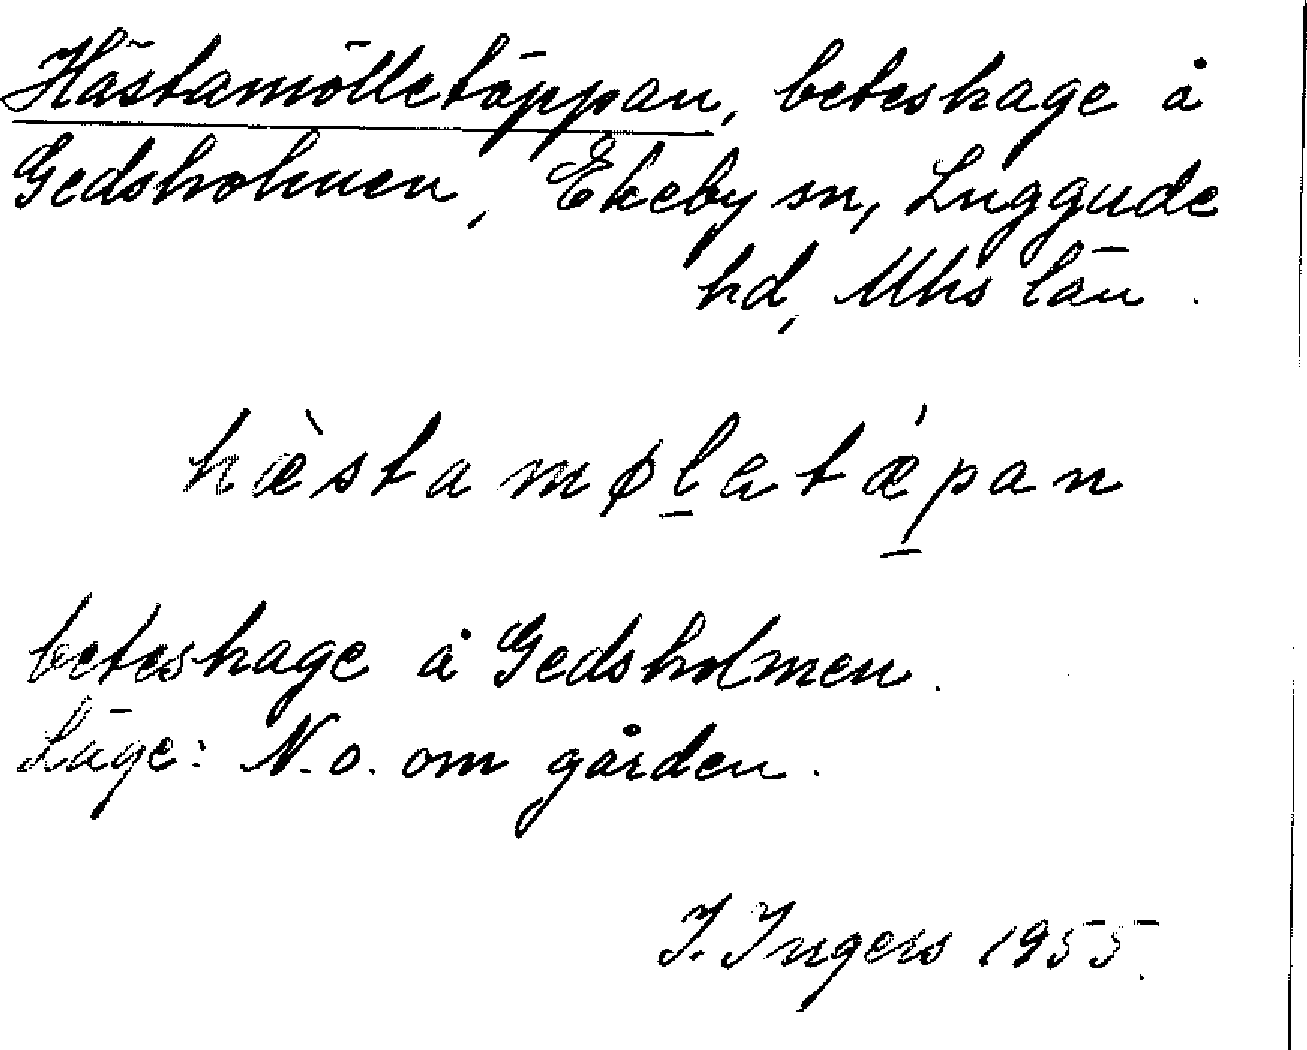 Hästamölletäppan, beteshage å
Gedsholmen, Ekeby sn, Luggude
hd, Mhs län.
hæ̀stamøl̠atǽp̠an
beteshage å Gedsholmen.
Läge: N.o. om gården.
I. Ingers 1955.